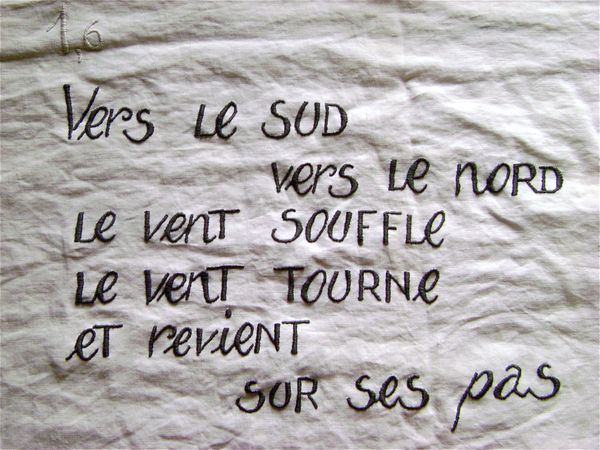 1,6
Vers le sud
vers le nord
le vent souffle
le vent tourne
et revient
sur ses pas